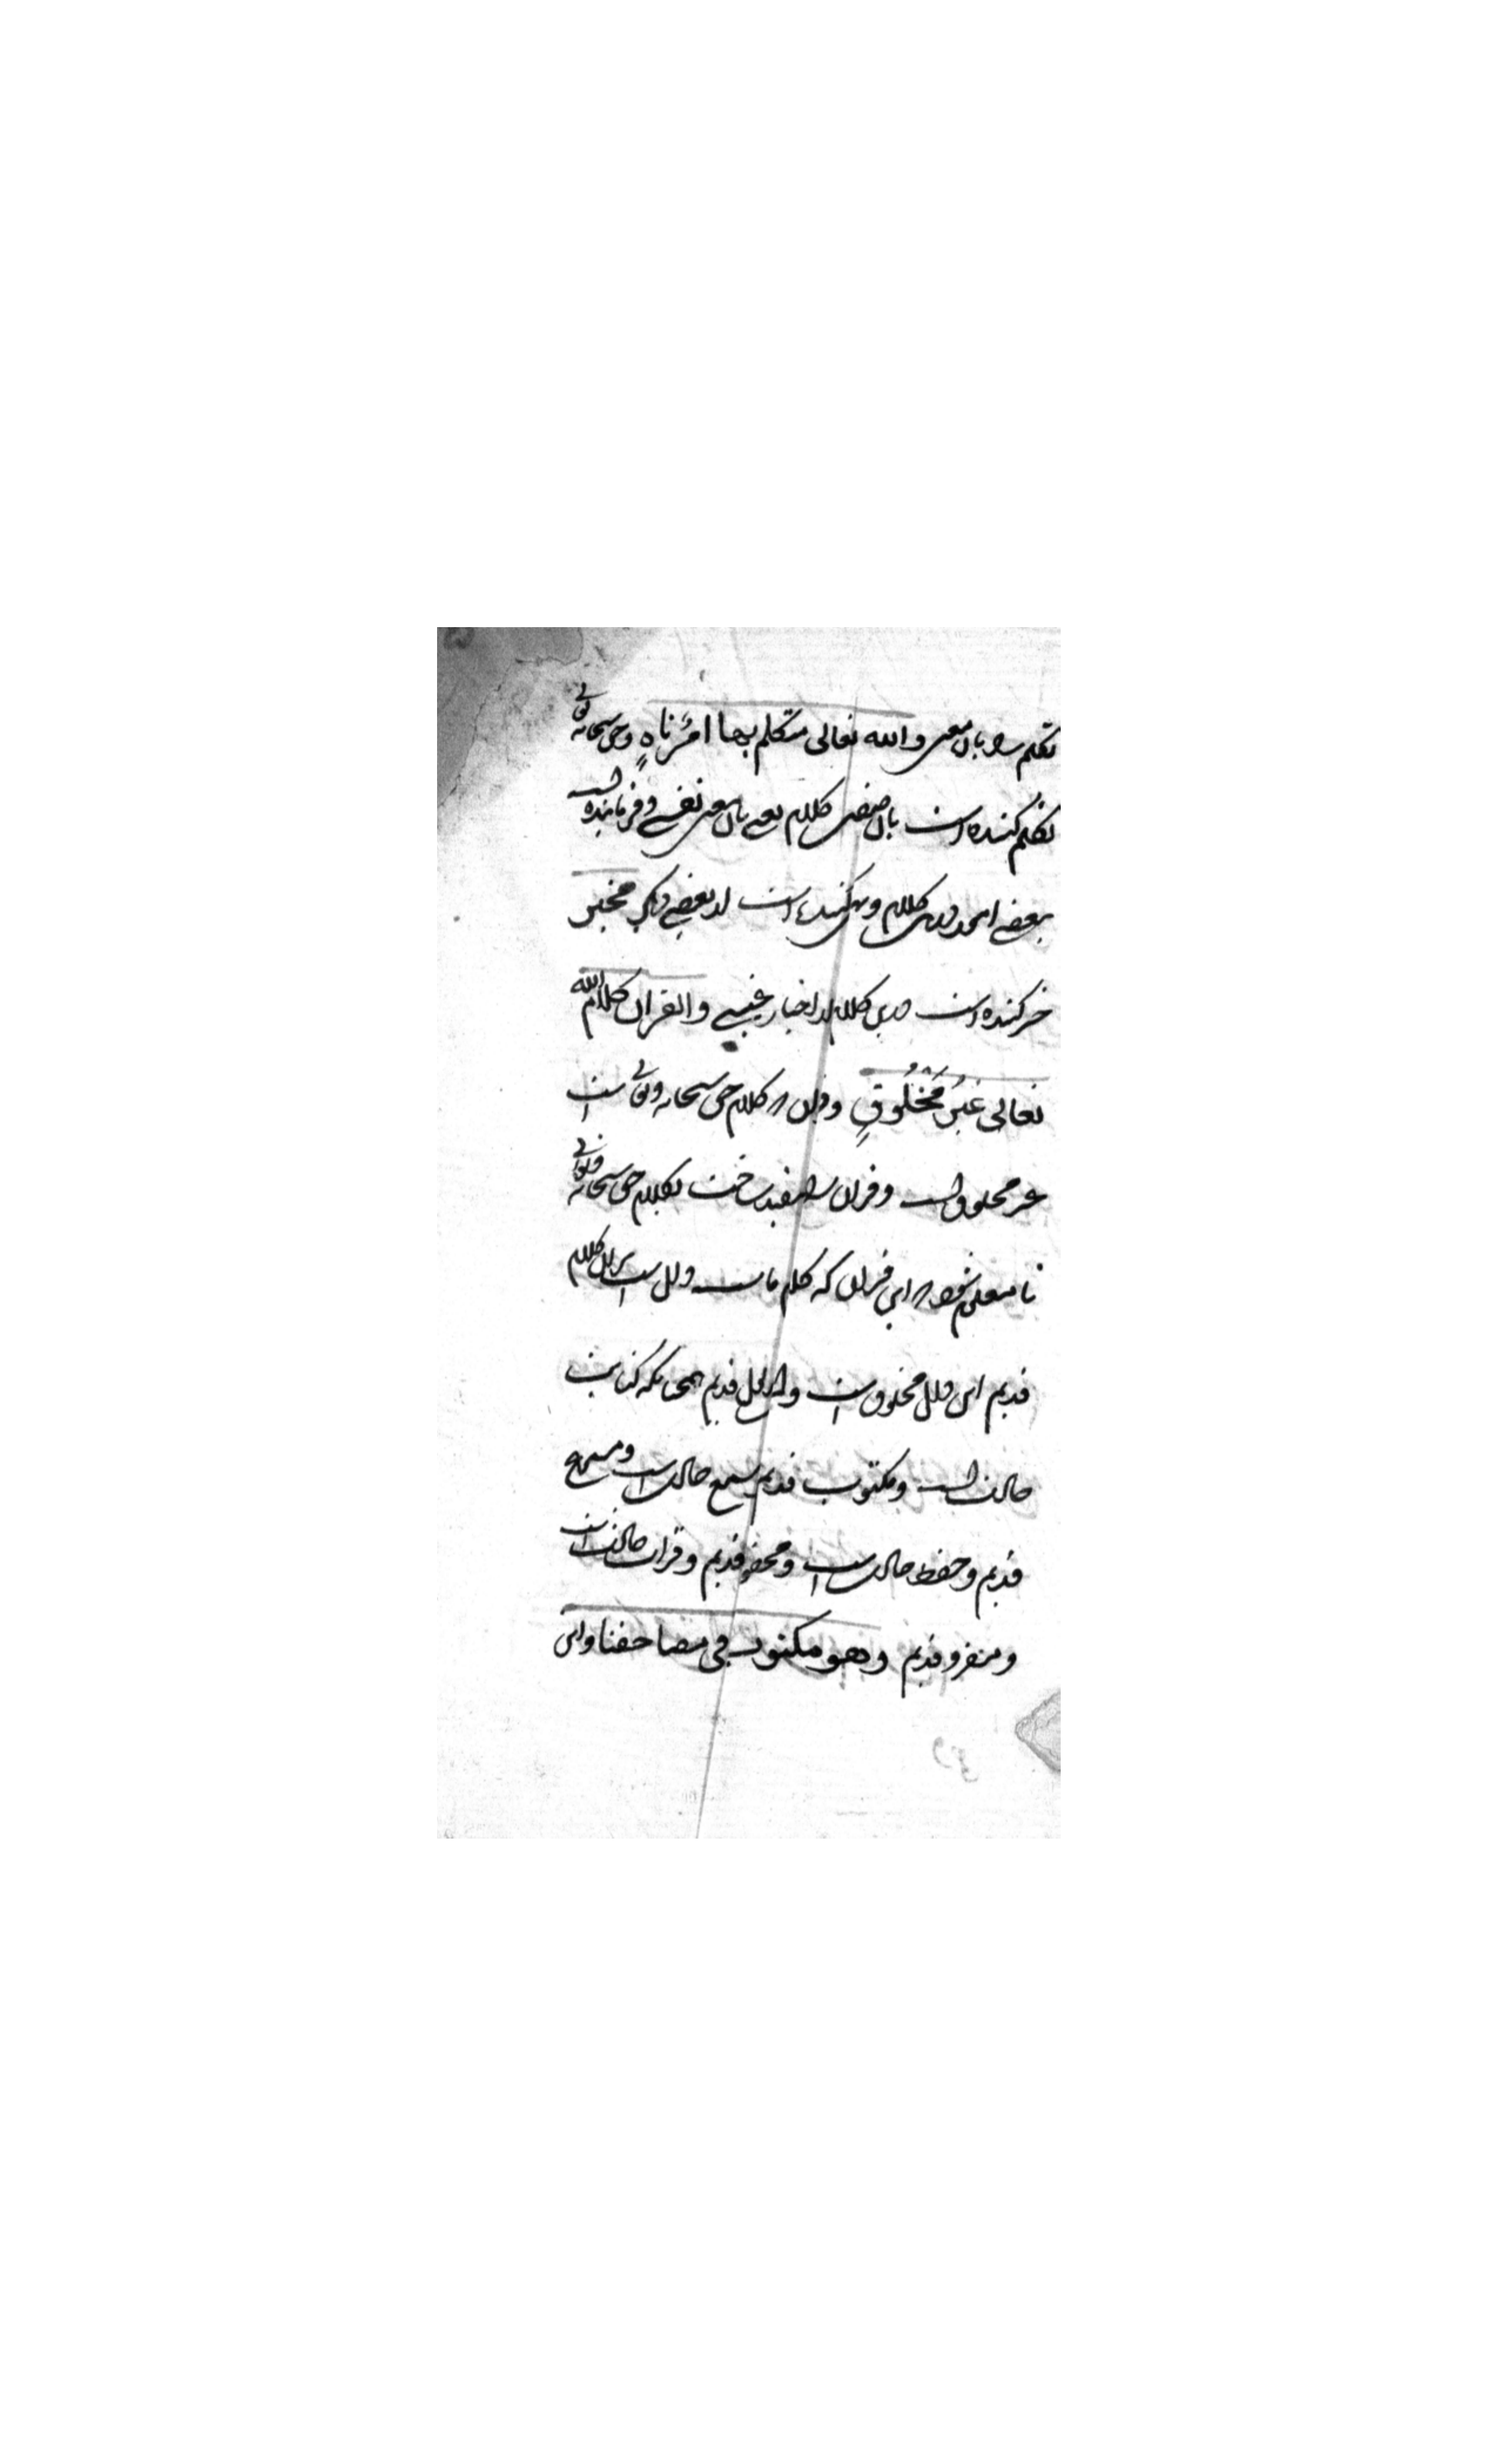 تکلم شود بان معنی والله تعالی متکلم بها امرٌ ناهٍ وحق سبحانه وتعالی
تکلم کننده است بان صفتی کلام یعنی بان معنی نفسی وفرماینده است
بعضی کلام ونهی کننده است از بعضی دیگر مخبر
خبر کننده است درین کلام از اخبار غیبی والقران کلام الله
تعالی غیرُ مَخْلُوقٍ وقران کلام حق سبحانه وتعالی است
غیر مخلوق است وقران را مقید ساخت بکلام حق سبحانه وتعالی
تا معلوم شود این قران که کلام ماست دال است بران کلام
قدیم این دال مخلوق است و مدلول قدیم همچنانکه کتابت
حادث است ومکتوب قدیم سمع حادث است ومسموع
قدیم وحفظ حادث است ومحفوظ قدیم وقرات حادث است
ومقرو قدیم وهو مکتوب فی مصاحفنا واین